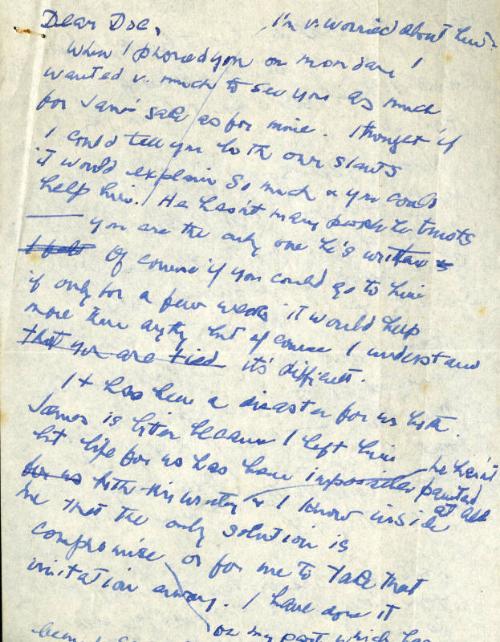 Dear Doc, I'm v. worried about him?
When I phoned you on Monday I
wanted v. much to see you as much
for James' sake as for mine. I thought if
I could tell you both our slants
it would explain so much & you could
help him. He hasn't many people he trusts
you are the only one he's written to
I felt Of course if you could go to him
if only for a few weeks it would help
more than anythg but of course I understand
that you are tied it's difficult.
It has been a disaster for us both.
James is bitter because I left him he hasn't
but life for us has been impossible painted
for us both this winter & I know inside at all
me that the only solution is
compromise or for me to take that
irritation away. I have done it
on my part which has
been